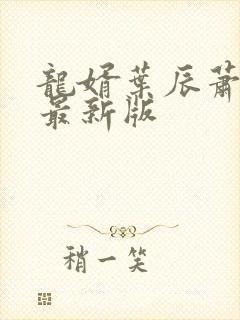 龍婿葉辰蕭
最新版
稍一笑